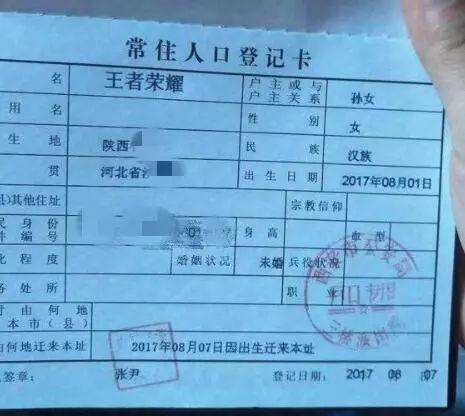 常住人口登记卡
名 王者荣耀 户主或与户主关系 孙女
用名 性别 女
生地 陕西 民族 汉族
贯 河北省 出生日期 2017年08月01日
县)其他住址 宗教信仰
民身份
件编号 身高 血型
化程度 婚姻状况 未婚 兵役状况
务处所 职业
时由何地
本市(县)
由何地迁来本址 2017年08月07日因出生迁来本址
签章： 张尹 登记日期： 2017 年 08 月 07